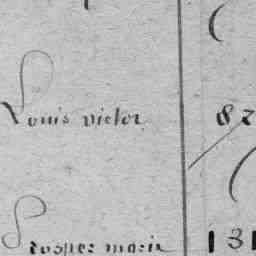 Louis victor 82
Prosper marie 131